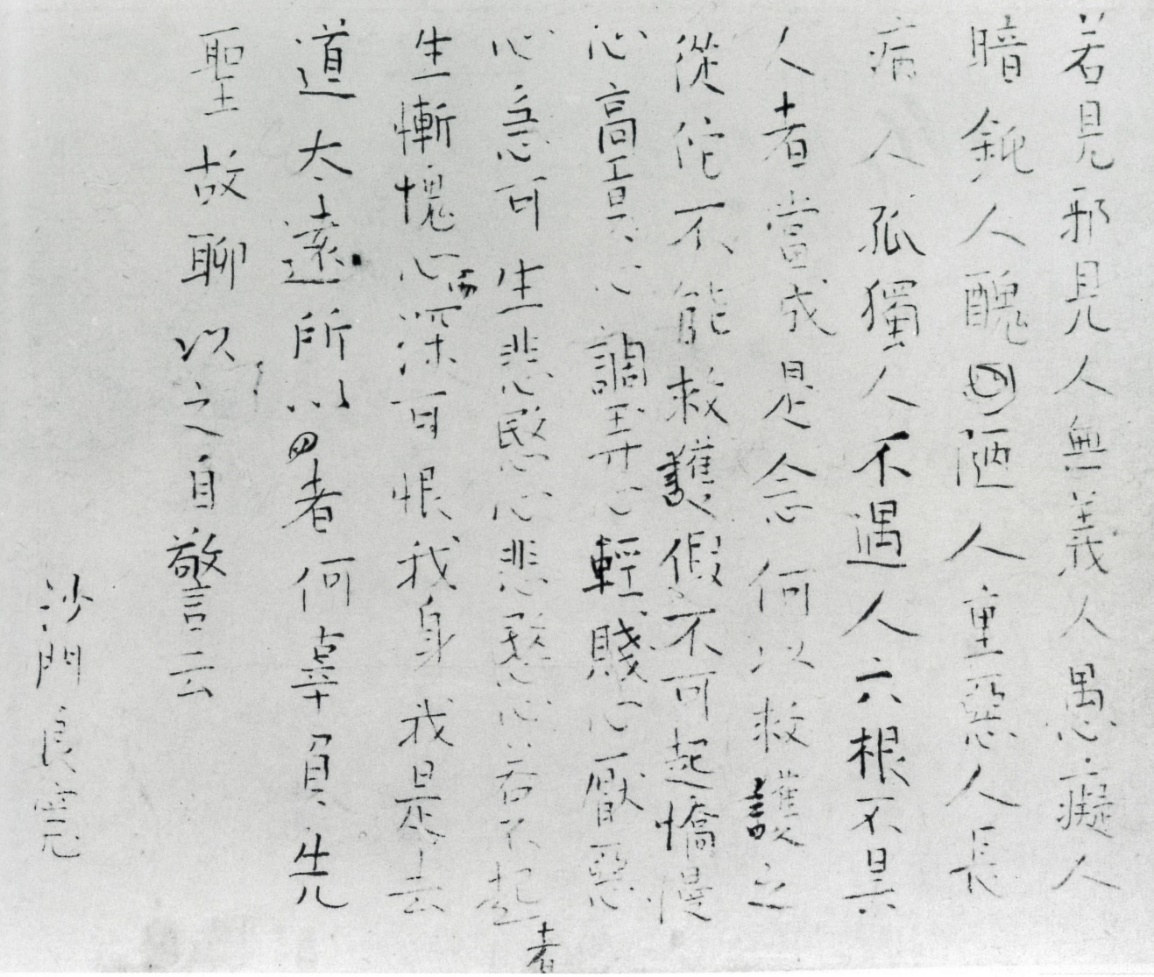 若見邪見人無義人愚癡人
暗鈍人醜陋人重惡人長
病人孤獨人不遇人六根不具
人者當成是念何以救護之
從佗不能救護假不可起憍慢
心高貴心調弄心輕賤心厭惡
心急可生悲愍心悲愍心若不起者
生慚愧心深可恨我身我是去
道太遠所以者何辜負先
聖故聊以之自警云
沙門良寛